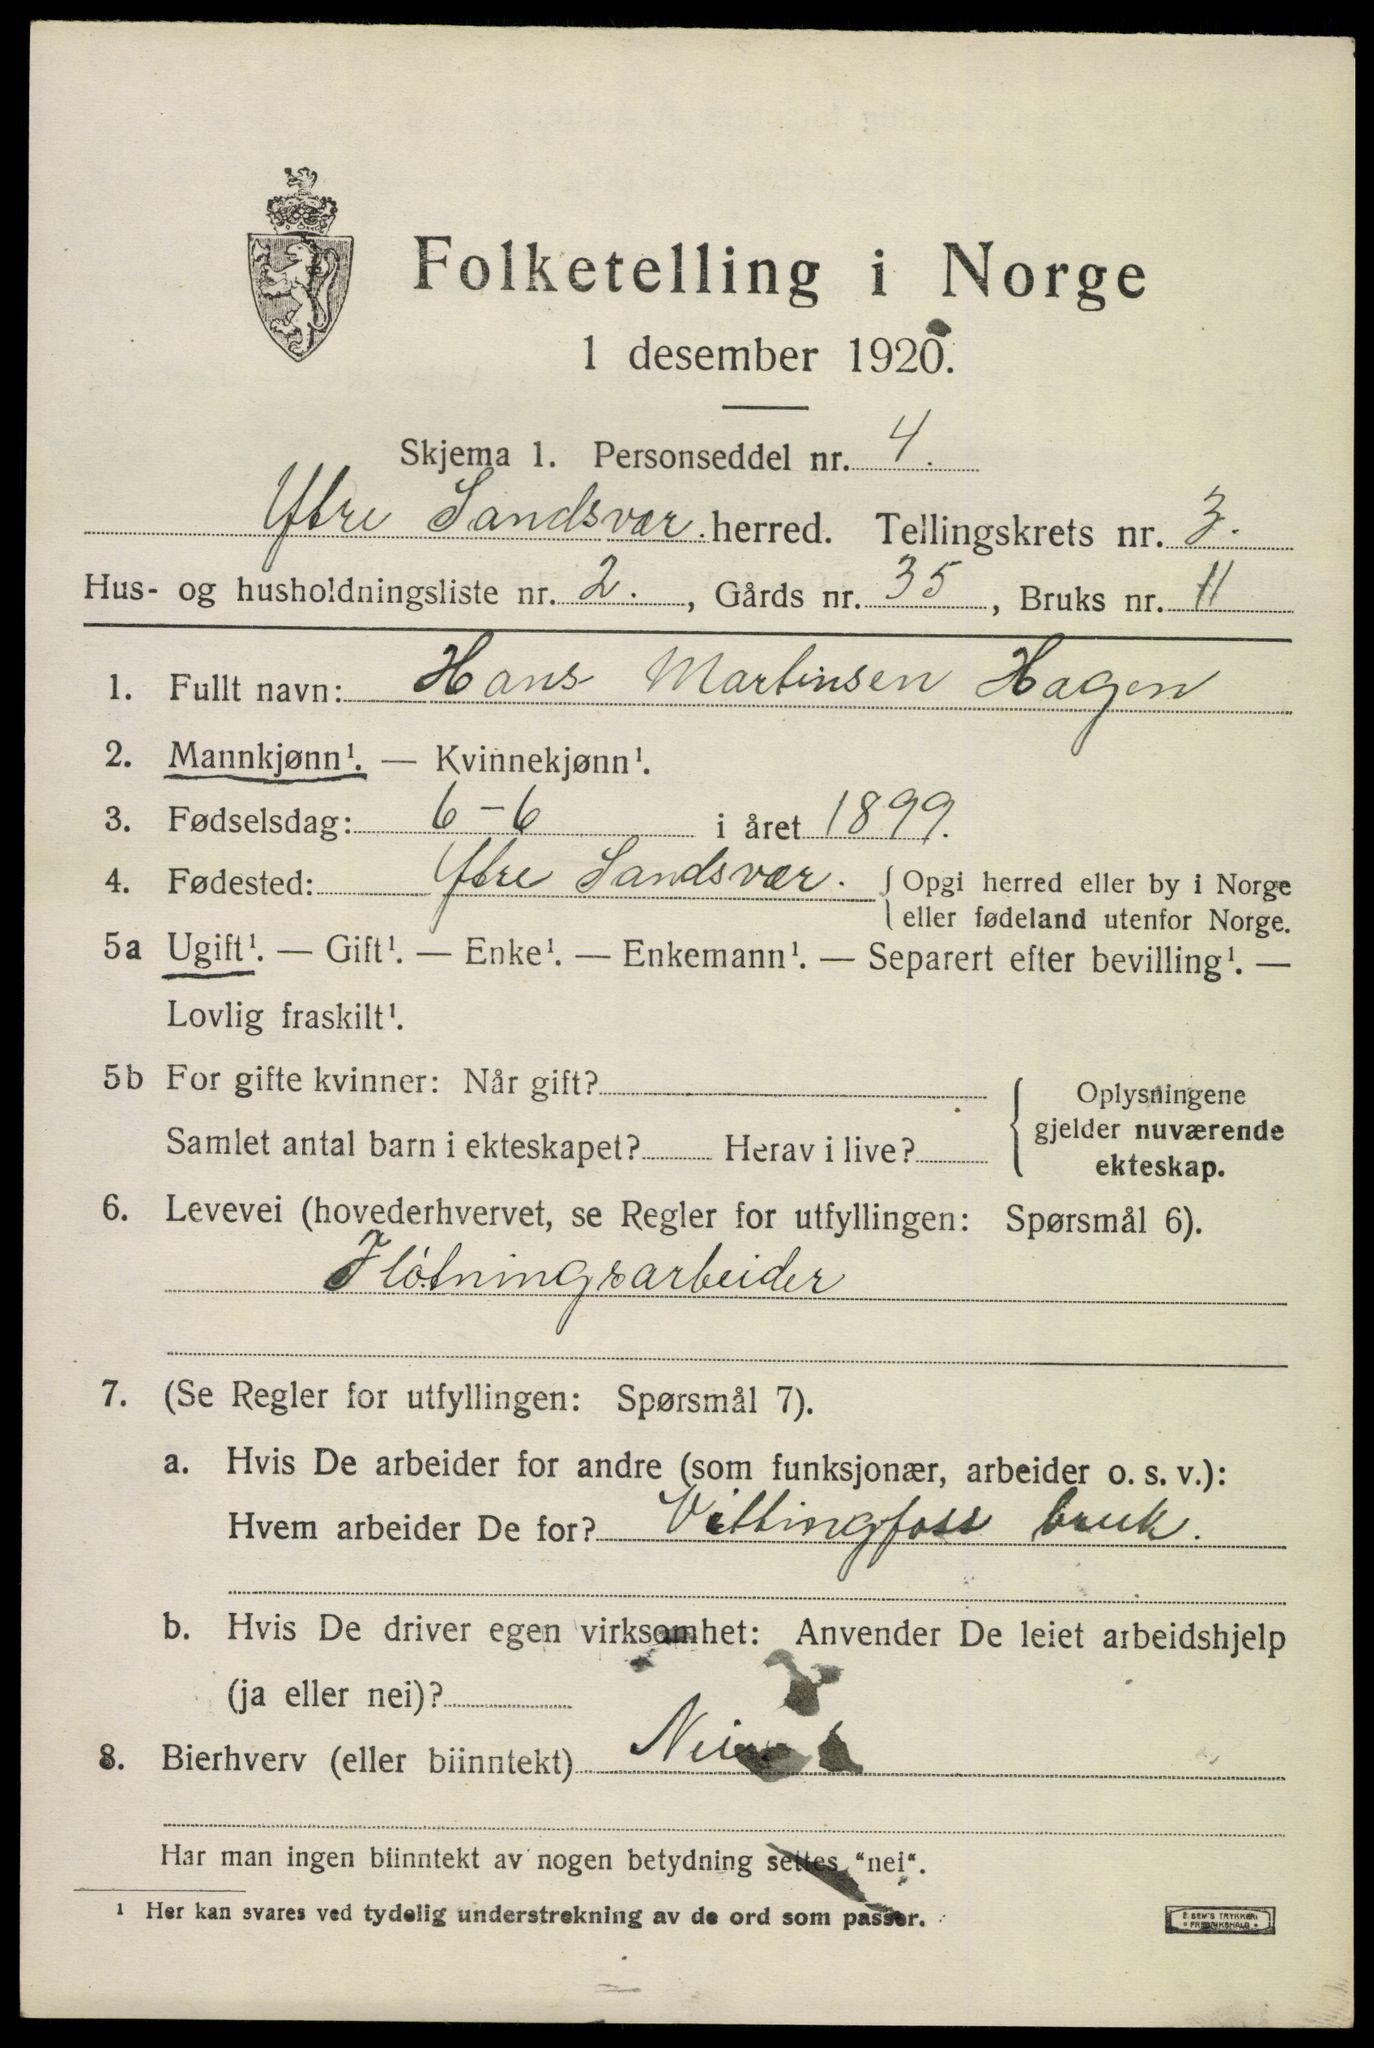 Folketelling i Norge
1 desember 1920.
Skjema 1. Personseddel nr. 4.
Ytre Sandsvær. herred. Tellingskrets nr. 3.
Hus- og husholdningsliste nr. 2. , Gårds nr. 35 , Bruks nr. 11
1. Fullt navn: Hans Martinsen Hagen
2. Mannkjønn¹. — Kvinnekjønn¹.
3. Fødselsdag: 6-6 i året 1899.
4. Fødested: Ytre Sandsvær. { Opgi herred eller by i Norge
eller fødeland utenfor Norge.
5a Ugift¹. — Gift¹. — Enke¹. — Enkemann¹. — Separert efter bevilling¹. —
Lovlig fraskilt¹.
5b For gifte kvinner: Når gift?
Samlet antal barn i ekteskapet? Herav i live?
{ Oplysningene
gjelder nuværende
ekteskap.
6. Levevei (hovederhvervet, se Regler for utfyllingen: Spørsmål 6).
Fløtningsarbeider
7. (Se Regler for utfyllingen: Spørsmål 7).
a. Hvis De arbeider for andre (som funksjonær, arbeider o. s. v.):
Hvem arbeider De for? Vittingfoss bruk.
b. Hvis De driver egen virksomhet: Anvender De leiet arbeidshjelp
(ja eller nei)?
8. Bierhverv (eller biinntekt) Nei
Har man ingen biinntekt av nogen betydning settes "nei".
¹ Her kan svares ved tydelig understrekning av de ord som passer.
E. SEM'S TRYKKERI
* FREDRIKSHALD *